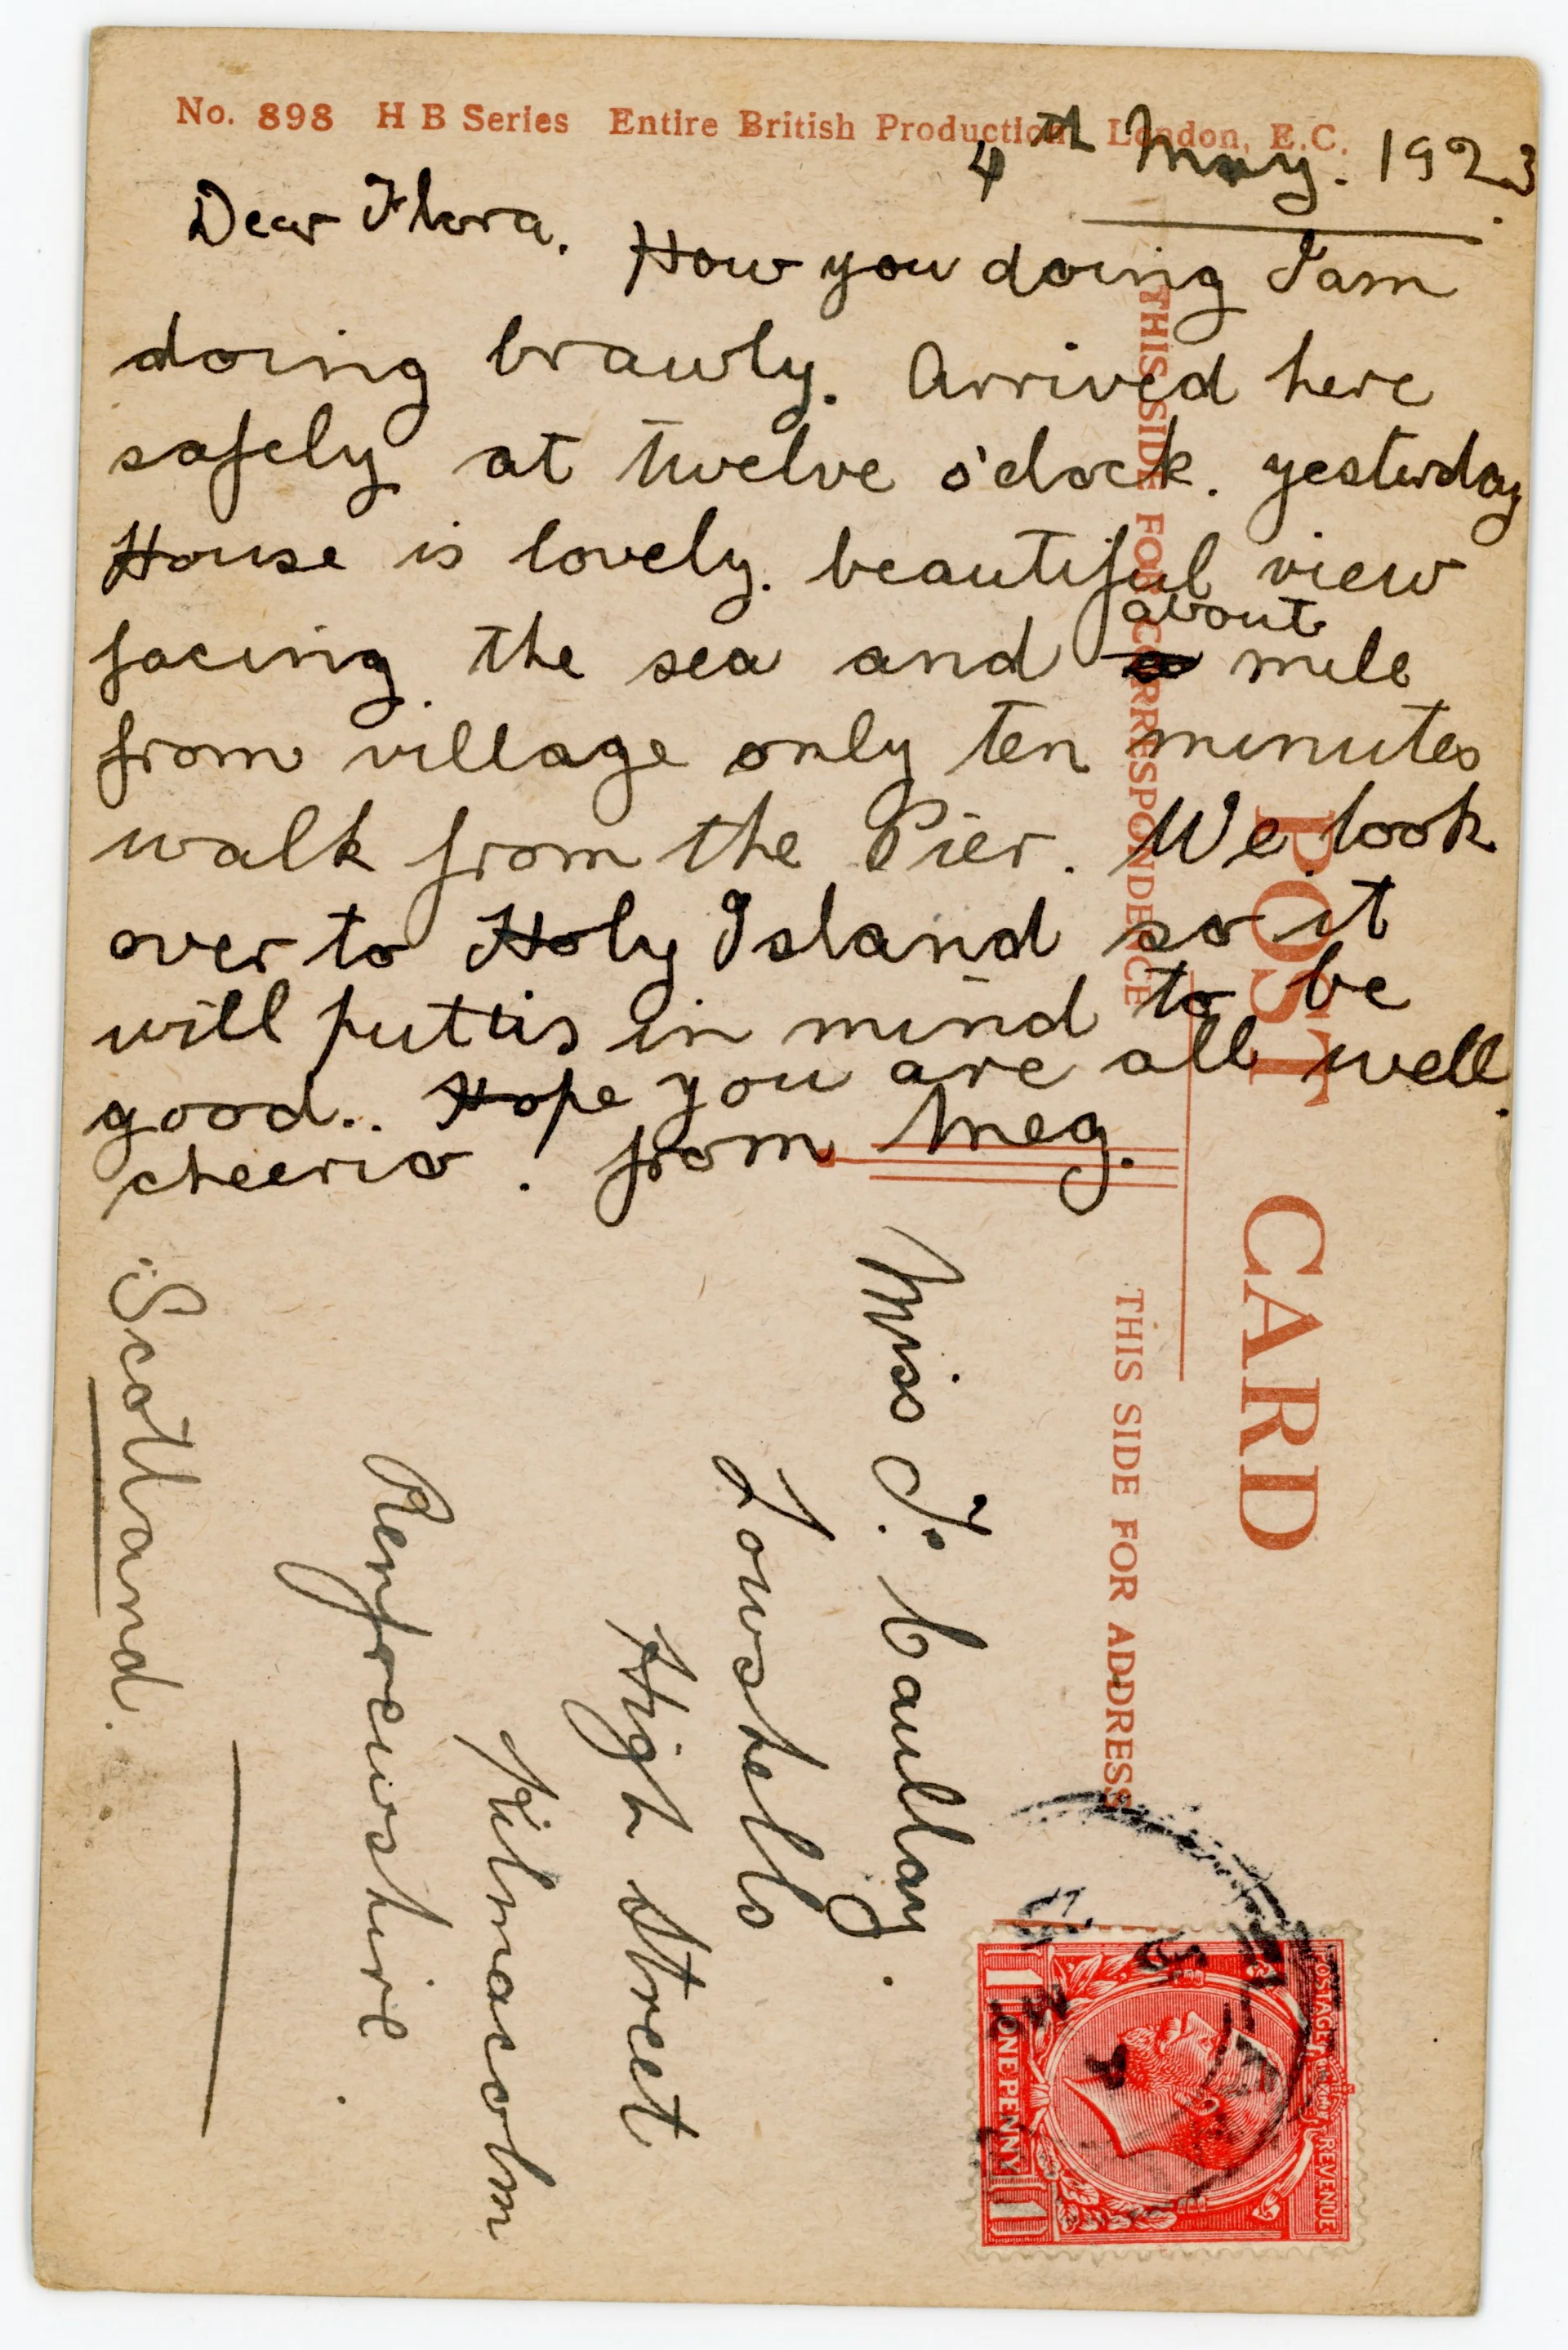 No. 898 H B Series Entire British Production London, E.C.
4th May. 1923.
Dear Flora. How you doing I am
doing brawly. Arrived here
safely at twelve o'clock. yesterday
House is lovely. beautiful view
about
facing the sea and a mile
from village only ten minutes
walk from the Pier. We look
over to Holy Island so it
will put us in mind to be
good.. Hope you are all well.
cheerio! from Meg.
POST CARD
THIS SIDE FOR CORRESPONDENCE
THIS SIDE FOR ADDRESS
Miss F. Caullay.
Lowshells
High Street
Kilmacolm
Renfrewshire.
Scotland.
POSTAGE REVENUE
1 ONE PENNY 1